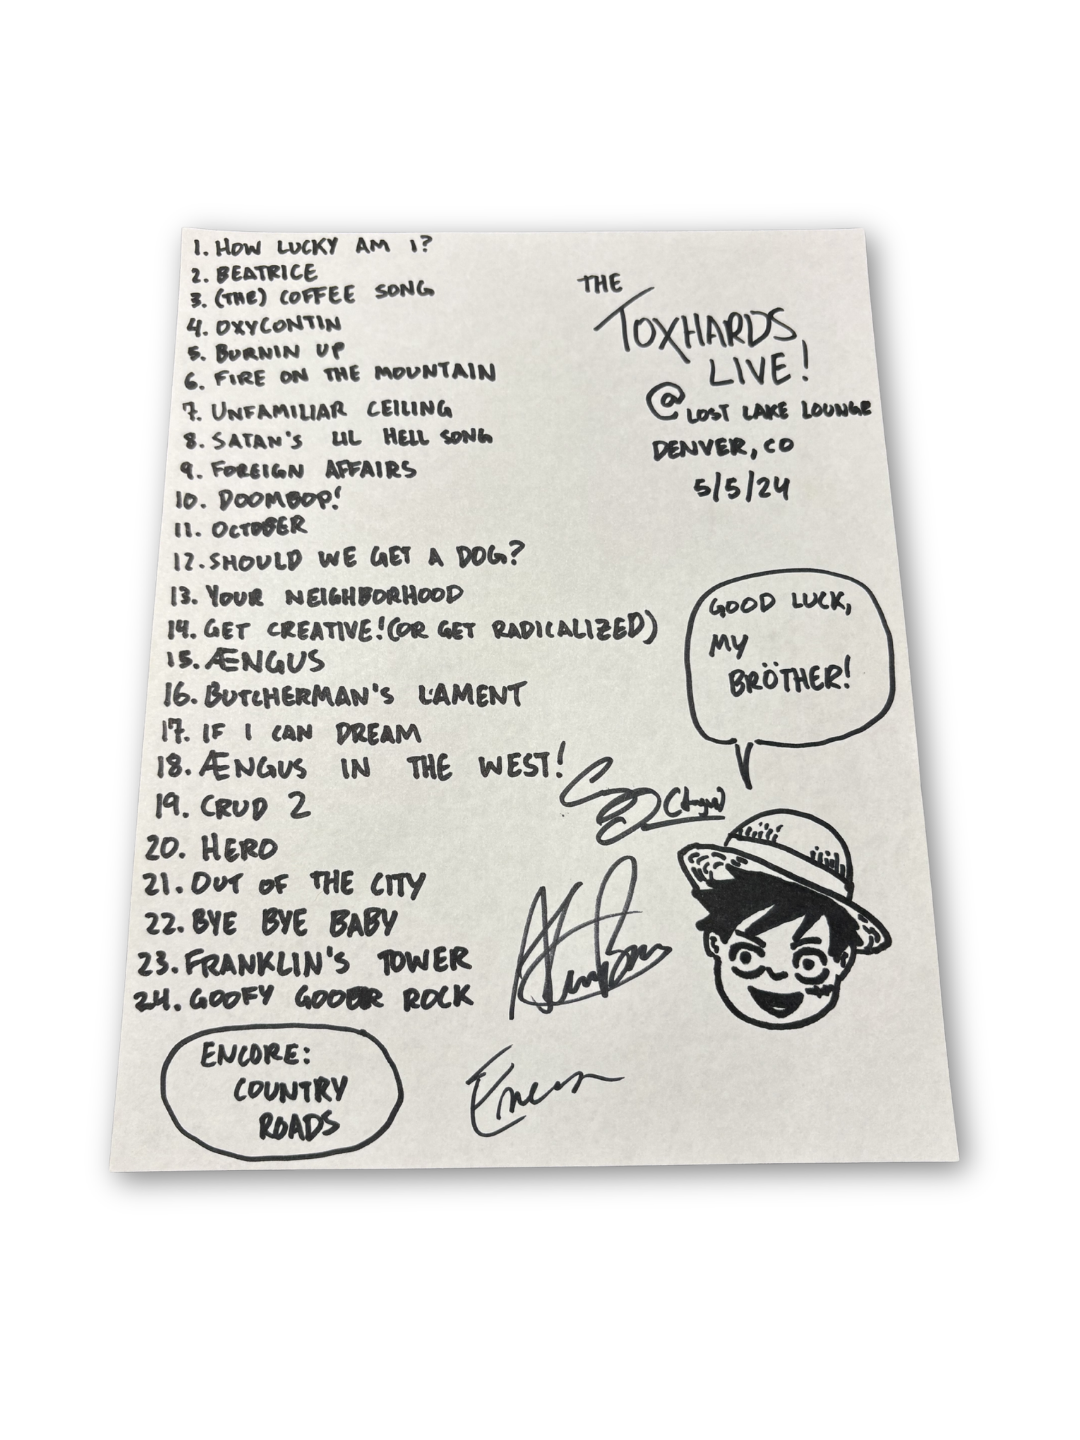 1. HOW LUCKY AM I?
2. BEATRICE
3. (THE) COFFEE SONG
4. OXYCONTIN
5. BURNIN UP
6. FIRE ON THE MOUNTAIN
7. UNFAMILIAR CEILING
8. SATAN'S LIL HELL SONG
9. FOREIGN AFFAIRS
10. DOOMBOP!
11. OCTOBER
12. SHOULD WE GET A DOG?
13. YOUR NEIGHBORHOOD
14. GET CREATIVE! (OR GET RADICALIZED)
15. ÆNGUS
16. BUTCHERMAN'S LAMENT
17. IF I CAN DREAM
18. ÆNGUS IN THE WEST!
19. CRUD 2
20. HERO
21. OUT OF THE CITY
22. BYE BYE BABY
23. FRANKLIN'S TOWER
24. GOOFY GOOBER ROCK
ENCORE:
COUNTRY
ROADS
THE
TOXHARDS
LIVE!
@ LOST LAKE LOUNGE
DENVER, CO
5/5/24
GOOD LUCK,
MY
BRÖTHER!